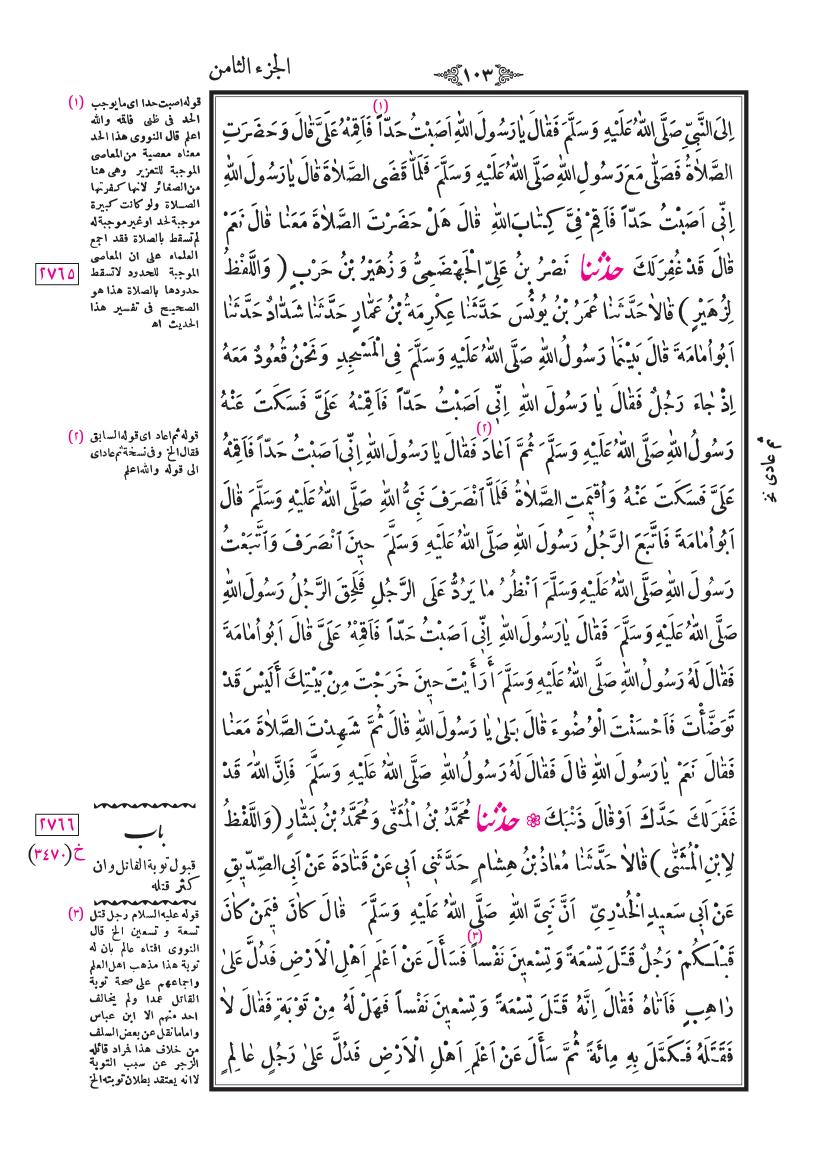 ١٠٣
الجزء الثامن
اِلَى النَّبِيِّ صَلَّى اللهُ عَلَيْهِ وَسَلَّمَ فَقَالَ يَا رَسُولَ اللهِ اَصَبْتُ حَدًّا (١) فَاَقِمْهُ عَلَيَّ قَالَ وَحَضَرَتِ
الصَّلَاةُ فَصَلَّى مَعَ رَسُولِ اللهِ صَلَّى اللهُ عَلَيْهِ وَسَلَّمَ فَلَمَّا قَضَى الصَّلَاةَ قَالَ يَا رَسُولَ اللهِ
اِنِّي اَصَبْتُ حَدًّا فَاَقِمْ فِيَّ كِتَابَ اللهِ قَالَ هَلْ حَضَرْتَ الصَّلَاةَ مَعَنَا قَالَ نَعَمْ
قَالَ قَدْ غُفِرَ لَكَ حدثنا نَصْرُ بْنُ عَلِيٍّ الْجَهْضَمِيُّ وَزُهَيْرُ بْنُ حَرْبٍ (وَاللَّفْظُ
لِزُهَيْرٍ) قَالَا حَدَّثَنَا عُمَرُ بْنُ يُونُسَ حَدَّثَنَا عِكْرِمَةُ بْنُ عَمَّارٍ حَدَّثَنَا شَدَّادٌ حَدَّثَنَا
اَبُو اُمَامَةَ قَالَ بَيْنَمَا رَسُولُ اللهِ صَلَّى اللهُ عَلَيْهِ وَسَلَّمَ فِي الْمَسْجِدِ وَنَحْنُ قُعُودٌ مَعَهُ
اِذْ جَاءَ رَجُلٌ فَقَالَ يَا رَسُولَ اللهِ اِنِّي اَصَبْتُ حَدًّا فَاَقِمْهُ عَلَيَّ فَسَكَتَ عَنْهُ
رَسُولُ اللهِ صَلَّى اللهُ عَلَيْهِ وَسَلَّمَ ثُمَّ اَعَادَ (٢) فَقَالَ يَا رَسُولَ اللهِ اِنِّي اَصَبْتُ حَدًّا فَاَقِمْهُ
عَلَيَّ فَسَكَتَ عَنْهُ وَاُقِيمَتِ الصَّلَاةُ فَلَمَّا انْصَرَفَ نَبِيُّ اللهِ صَلَّى اللهُ عَلَيْهِ وَسَلَّمَ قَالَ
اَبُو اُمَامَةَ فَاتَّبَعَ الرَّجُلُ رَسُولَ اللهِ صَلَّى اللهُ عَلَيْهِ وَسَلَّمَ حِينَ انْصَرَفَ وَاتَّبَعْتُ
رَسُولَ اللهِ صَلَّى اللهُ عَلَيْهِ وَسَلَّمَ اَنْظُرُ مَا يَرُدُّ عَلَى الرَّجُلِ فَلَحِقَ الرَّجُلُ رَسُولَ اللهِ
صَلَّى اللهُ عَلَيْهِ وَسَلَّمَ فَقَالَ يَا رَسُولَ اللهِ اِنِّي اَصَبْتُ حَدًّا فَاَقِمْهُ عَلَيَّ قَالَ اَبُو اُمَامَةَ
فَقَالَ لَهُ رَسُولُ اللهِ صَلَّى اللهُ عَلَيْهِ وَسَلَّمَ اَرَأَيْتَ حِينَ خَرَجْتَ مِنْ بَيْتِكَ أَلَيْسَ قَدْ
تَوَضَّأْتَ فَاَحْسَنْتَ الْوُضُوءَ قَالَ بَلَى يَا رَسُولَ اللهِ قَالَ ثُمَّ شَهِدْتَ الصَّلَاةَ مَعَنَا
فَقَالَ نَعَمْ يَا رَسُولَ اللهِ قَالَ فَقَالَ لَهُ رَسُولُ اللهِ صَلَّى اللهُ عَلَيْهِ وَسَلَّمَ فَاِنَّ اللهَ قَدْ
غَفَرَ لَكَ حَدَّكَ اَوْ قَالَ ذَنْبَكَ ❁ حدثنا مُحَمَّدُ بْنُ الْمُثَنَّى وَمُحَمَّدُ بْنُ بَشَّارٍ (وَاللَّفْظُ
لِابْنِ الْمُثَنَّى) قَالَا حَدَّثَنَا مُعَاذُ بْنُ هِشَامٍ حَدَّثَنِي اَبِي عَنْ قَتَادَةَ عَنْ اَبِي الصِّدِّيقِ
عَنْ اَبِي سَعِيدٍ الْخُدْرِيِّ اَنَّ نَبِيَّ اللهِ صَلَّى اللهُ عَلَيْهِ وَسَلَّمَ قَالَ كَانَ فِيمَنْ كَانَ
قَبْلَكُمْ رَجُلٌ قَتَلَ تِسْعَةً وَتِسْعِينَ نَفْسًا (٣) فَسَأَلَ عَنْ اَعْلَمِ اَهْلِ الْاَرْضِ فَدُلَّ عَلَى
رَاهِبٍ فَاَتَاهُ فَقَالَ اِنَّهُ قَتَلَ تِسْعَةً وَتِسْعِينَ نَفْسًا فَهَلْ لَهُ مِنْ تَوْبَةٍ فَقَالَ لَا
فَقَتَلَهُ فَكَمَّلَ بِهِ مِائَةً ثُمَّ سَأَلَ عَنْ اَعْلَمِ اَهْلِ الْاَرْضِ فَدُلَّ عَلَى رَجُلٍ عَالِمٍ
ثم عاد ى نخ
(١) قوله اصبت حدا اى ما يوجب
الحد فى ظنى فاقمه والله
اعلم قال النووى هذا الحد
معناه معصية من المعاصى
الموجبة للتعزير وهى هنا
من الصغائر لانها كفرتها
الصلاة ولو كانت كبيرة
موجبة لحد او غير موجبة له
لم تسقط بالصلاة فقد اجمع
العلماء على ان المعاصى
الموجبة للحدود لا تسقط
حدودها بالصلاة هذا هو
الصحيح فى تفسير هذا
الحديث اه
٢٧٦٥
(٢) قوله ثم اعاد اى قوله السابق
فقال الخ وفى نسخة ثم عاد اى
الى قوله والله اعلم
٢٧٦٦
خ (٣٤٧٠)
باب
قبول توبة القاتل وان
كثر قتله
(٣) قوله عليه السلام رجل قتل
تسعة و تسعين الخ قال
النووى افتاه عالم بان له
توبة هذا مذهب اهل العلم
واجماعهم على صحة توبة
القاتل عمدا ولم يخالف
احد منهم الا ابن عباس
واما ما نقل عن بعض السلف
من خلاف هذا فمراد قائله
الزجر عن سبب التوبة
لا انه يعتقد بطلان توبته الخ